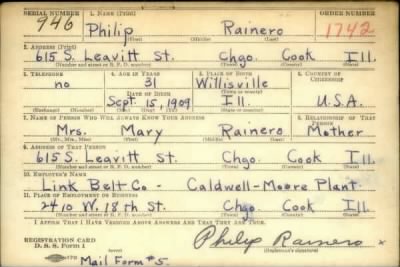 SERIAL NUMBER 1. NAME (Print) ORDER NUMBER
946 Philip Rainero 1742
(First) (Middle) (Last)
2. ADDRESS (Print)
615 S. Leavitt St. Chgo. Cook Ill.
(Number and street or R. F. D. number) (Town) (County) (State)
3. TELEPHONE 4. AGE IN YEARS 5. PLACE OF BIRTH 6. COUNTRY OF CITIZENSHIP
no 31 Willisville
DATE OF BIRTH (Town or county)
Sept. 15, 1909 Ill. U.S.A.
(Exchange) (Number) (Mo.) (Day) (Yr.) (State or country)
7. NAME OF PERSON WHO WILL ALWAYS KNOW YOUR ADDRESS 8. RELATIONSHIP OF THAT PERSON
Mrs. Mary Rainero Mother
(Mr., Mrs., Miss) (First) (Middle) (Last)
9. ADDRESS OF THAT PERSON
615 S. Leavitt St. Chgo. Cook Ill.
(Number and street or R. F. D. number) (Town) (County) (State)
10. EMPLOYER'S NAME
Link Belt Co - Caldwell-Moore Plant.
11. PLACE OF EMPLOYMENT OR BUSINESS
2410 W. 18th St. Chgo. Cook Ill.
(Number and street or R. F. D. number) (Town) (County) (State)
I AFFIRM THAT I HAVE VERIFIED ABOVE ANSWERS AND THAT THEY ARE TRUE.
REGISTRATION CARD
D. S. S. Form 1 Philip Rainero
(Registrant's signature)
Mail Form #5.